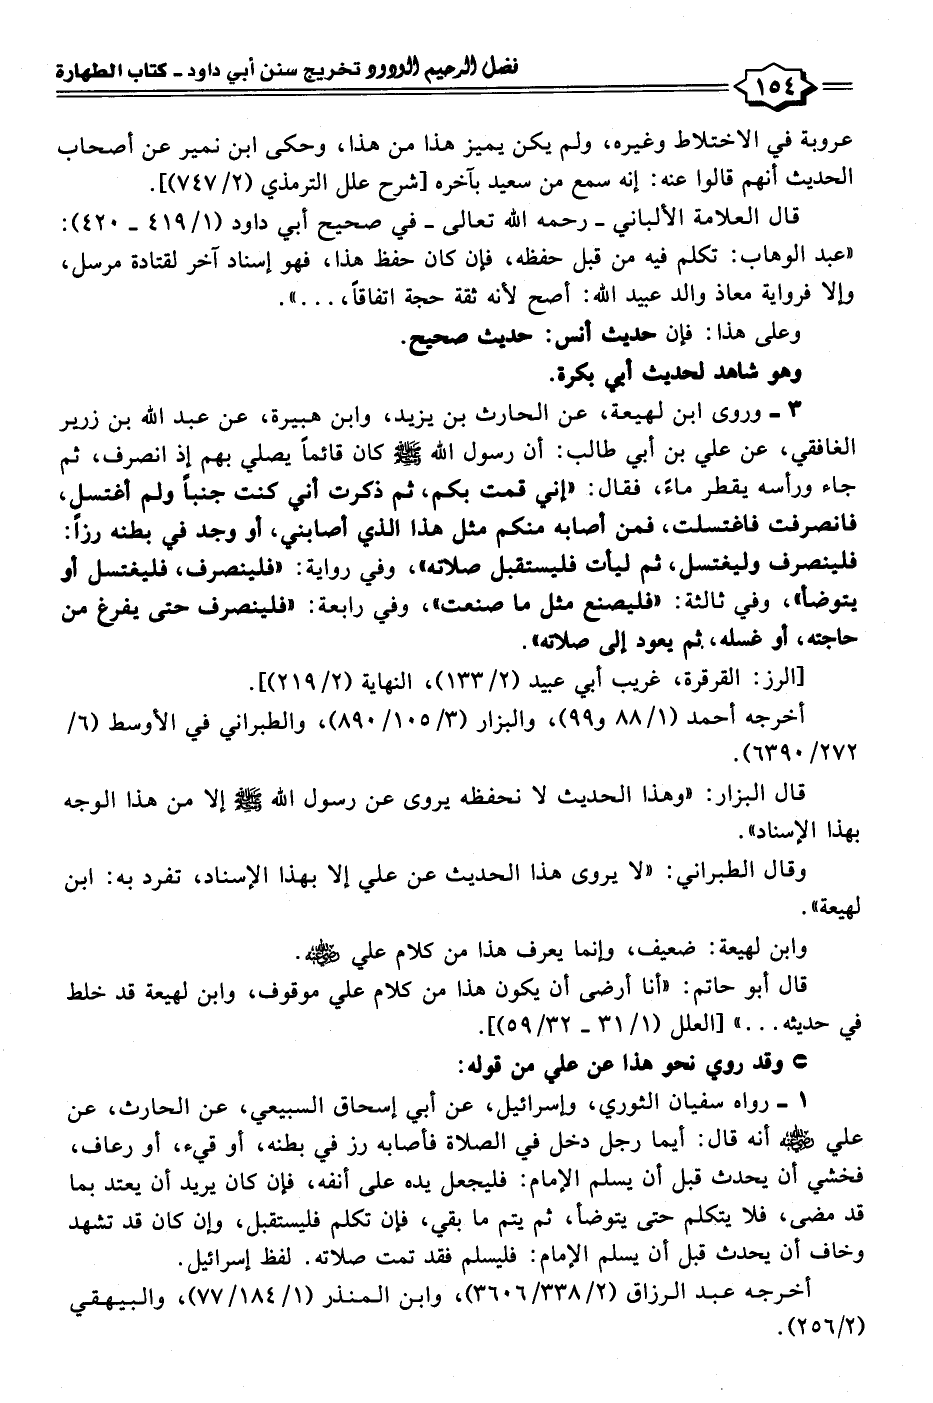 فضل الرحيم الودود تخريج سنن أبي داود ـ كتاب الطهارة
١٥٤
عروبة في الاختلاط وغيره، ولم يكن يميز هذا من هذا، وحكى ابن نمير عن أصحاب
الحديث أنهم قالوا عنه: إنه سمع من سعيد بآخره [شرح علل الترمذي (٧٤٧/٢)].
قال العلامة الألباني ـ رحمه الله تعالى ـ في صحيح أبي داود (٤١٩/١ ـ ٤٢٠):
«عبد الوهاب: تكلم فيه من قبل حفظه، فإن كان حفظ هذا، فهو إسناد آخر لقتادة مرسل،
وإلا فرواية معاذ والد عبيد الله: أصح لأنه ثقة حجة اتفاقاً، ...».
وعلى هذا: فإن حديث أنس: حديث صحيح.
وهو شاهد لحديث أبي بكرة.
٣ ـ وروى ابن لهيعة، عن الحارث بن يزيد، وابن هبيرة، عن عبد الله بن زرير
الغافقي، عن علي بن أبي طالب: أن رسول الله ﷺ كان قائماً يصلي بهم إذ انصرف، ثم
جاء ورأسه يقطر ماءً، فقال: «إني قمت بكم، ثم ذكرت أني كنت جنباً ولم أغتسل،
فانصرفت فاغتسلت، فمن أصابه منكم مثل هذا الذي أصابني، أو وجد في بطنه رزاً:
فلينصرف وليغتسل، ثم ليأت فليستقبل صلاته»، وفي رواية: «فلينصرف، فليغتسل أو
يتوضأ»، وفي ثالثة: «فليصنع مثل ما صنعت»، وفي رابعة: «فلينصرف حتى يفرغ من
حاجته، أو غسله، ثم يعود إلى صلاته».
[الرز: القرقرة، غريب أبي عبيد (١٣٣/٢)، النهاية (٢١٩/٢)].
أخرجه أحمد (٨٨/١ و٩٩)، والبزار (٨٩٠/١٠٥/٣)، والطبراني في الأوسط (٦/
٦٣٩٠/٢٧٢).
قال البزار: «وهذا الحديث لا نحفظه يروى عن رسول الله ﷺ إلا من هذا الوجه
بهذا الإسناد».
وقال الطبراني: «لا يروى هذا الحديث عن علي إلا بهذا الإسناد، تفرد به: ابن
لهيعة».
وابن لهيعة: ضعيف، وإنما يعرف هذا من كلام علي رضي الله عنه.
قال أبو حاتم: «أنا أرضى أن يكون هذا من كلام علي موقوف، وابن لهيعة قد خلط
في حديثه...» [العلل (٣١/١ ـ ٥٩/٣٢)].
وقد روي نحو هذا عن علي من قوله:
١ ـ رواه سفيان الثوري، وإسرائيل، عن أبي إسحاق السبيعي، عن الحارث، عن
علي رضي الله عنه أنه قال: أيما رجل دخل في الصلاة فأصابه رز في بطنه، أو قيء، أو رعاف،
فخشي أن يحدث قبل أن يسلم الإمام: فليجعل يده على أنفه، فإن كان يريد أن يعتد بما
قد مضى، فلا يتكلم حتى يتوضأ، ثم يتم ما بقي، فإن تكلم فليستقبل، وإن كان قد تشهد
وخاف أن يحدث قبل أن يسلم الإمام: فليسلم فقد تمت صلاته. لفظ إسرائيل.
أخرجه عبد الرزاق (٣٦٠٦/٣٣٨/٢)، وابن المنذر (٧٧/١٨٤/١)، والبيهقي
(٢٥٦/٢).